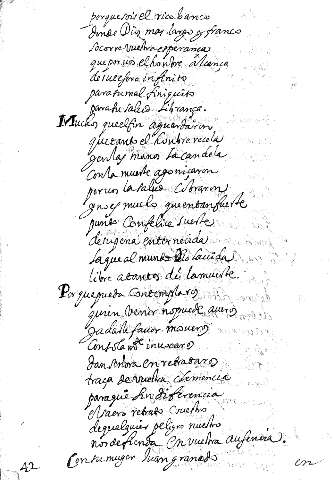 porque sois el rico banco
donde Dios mas largo y franco
socorre vuestra esperança
que por vos el honbre alcança
de su infinito
para tu mal finiquito
para tu salud librança.
Muchos que el fin aguardaron
que tanto el honbre recela
y en las manos la candela
con la muerte agonizaron
por vos la salud cobraron
y no es mucho que en tan fuerte
punto con felice suerte
de su pena enternecida
la que al mundo dio la vida
libre a tantos de la muerte.
Porque pueda contemplaros
quien venir no puede a veros
y a daros favor moveros
con sola
don Señora en retrataros
traça de vuestra clemencia
para que sin diferencia
el sacro retrato vuestro
de qualquier peligro nuestro
nos defienda en vuestra ausencia.
Con su muger Juan granado
42 en